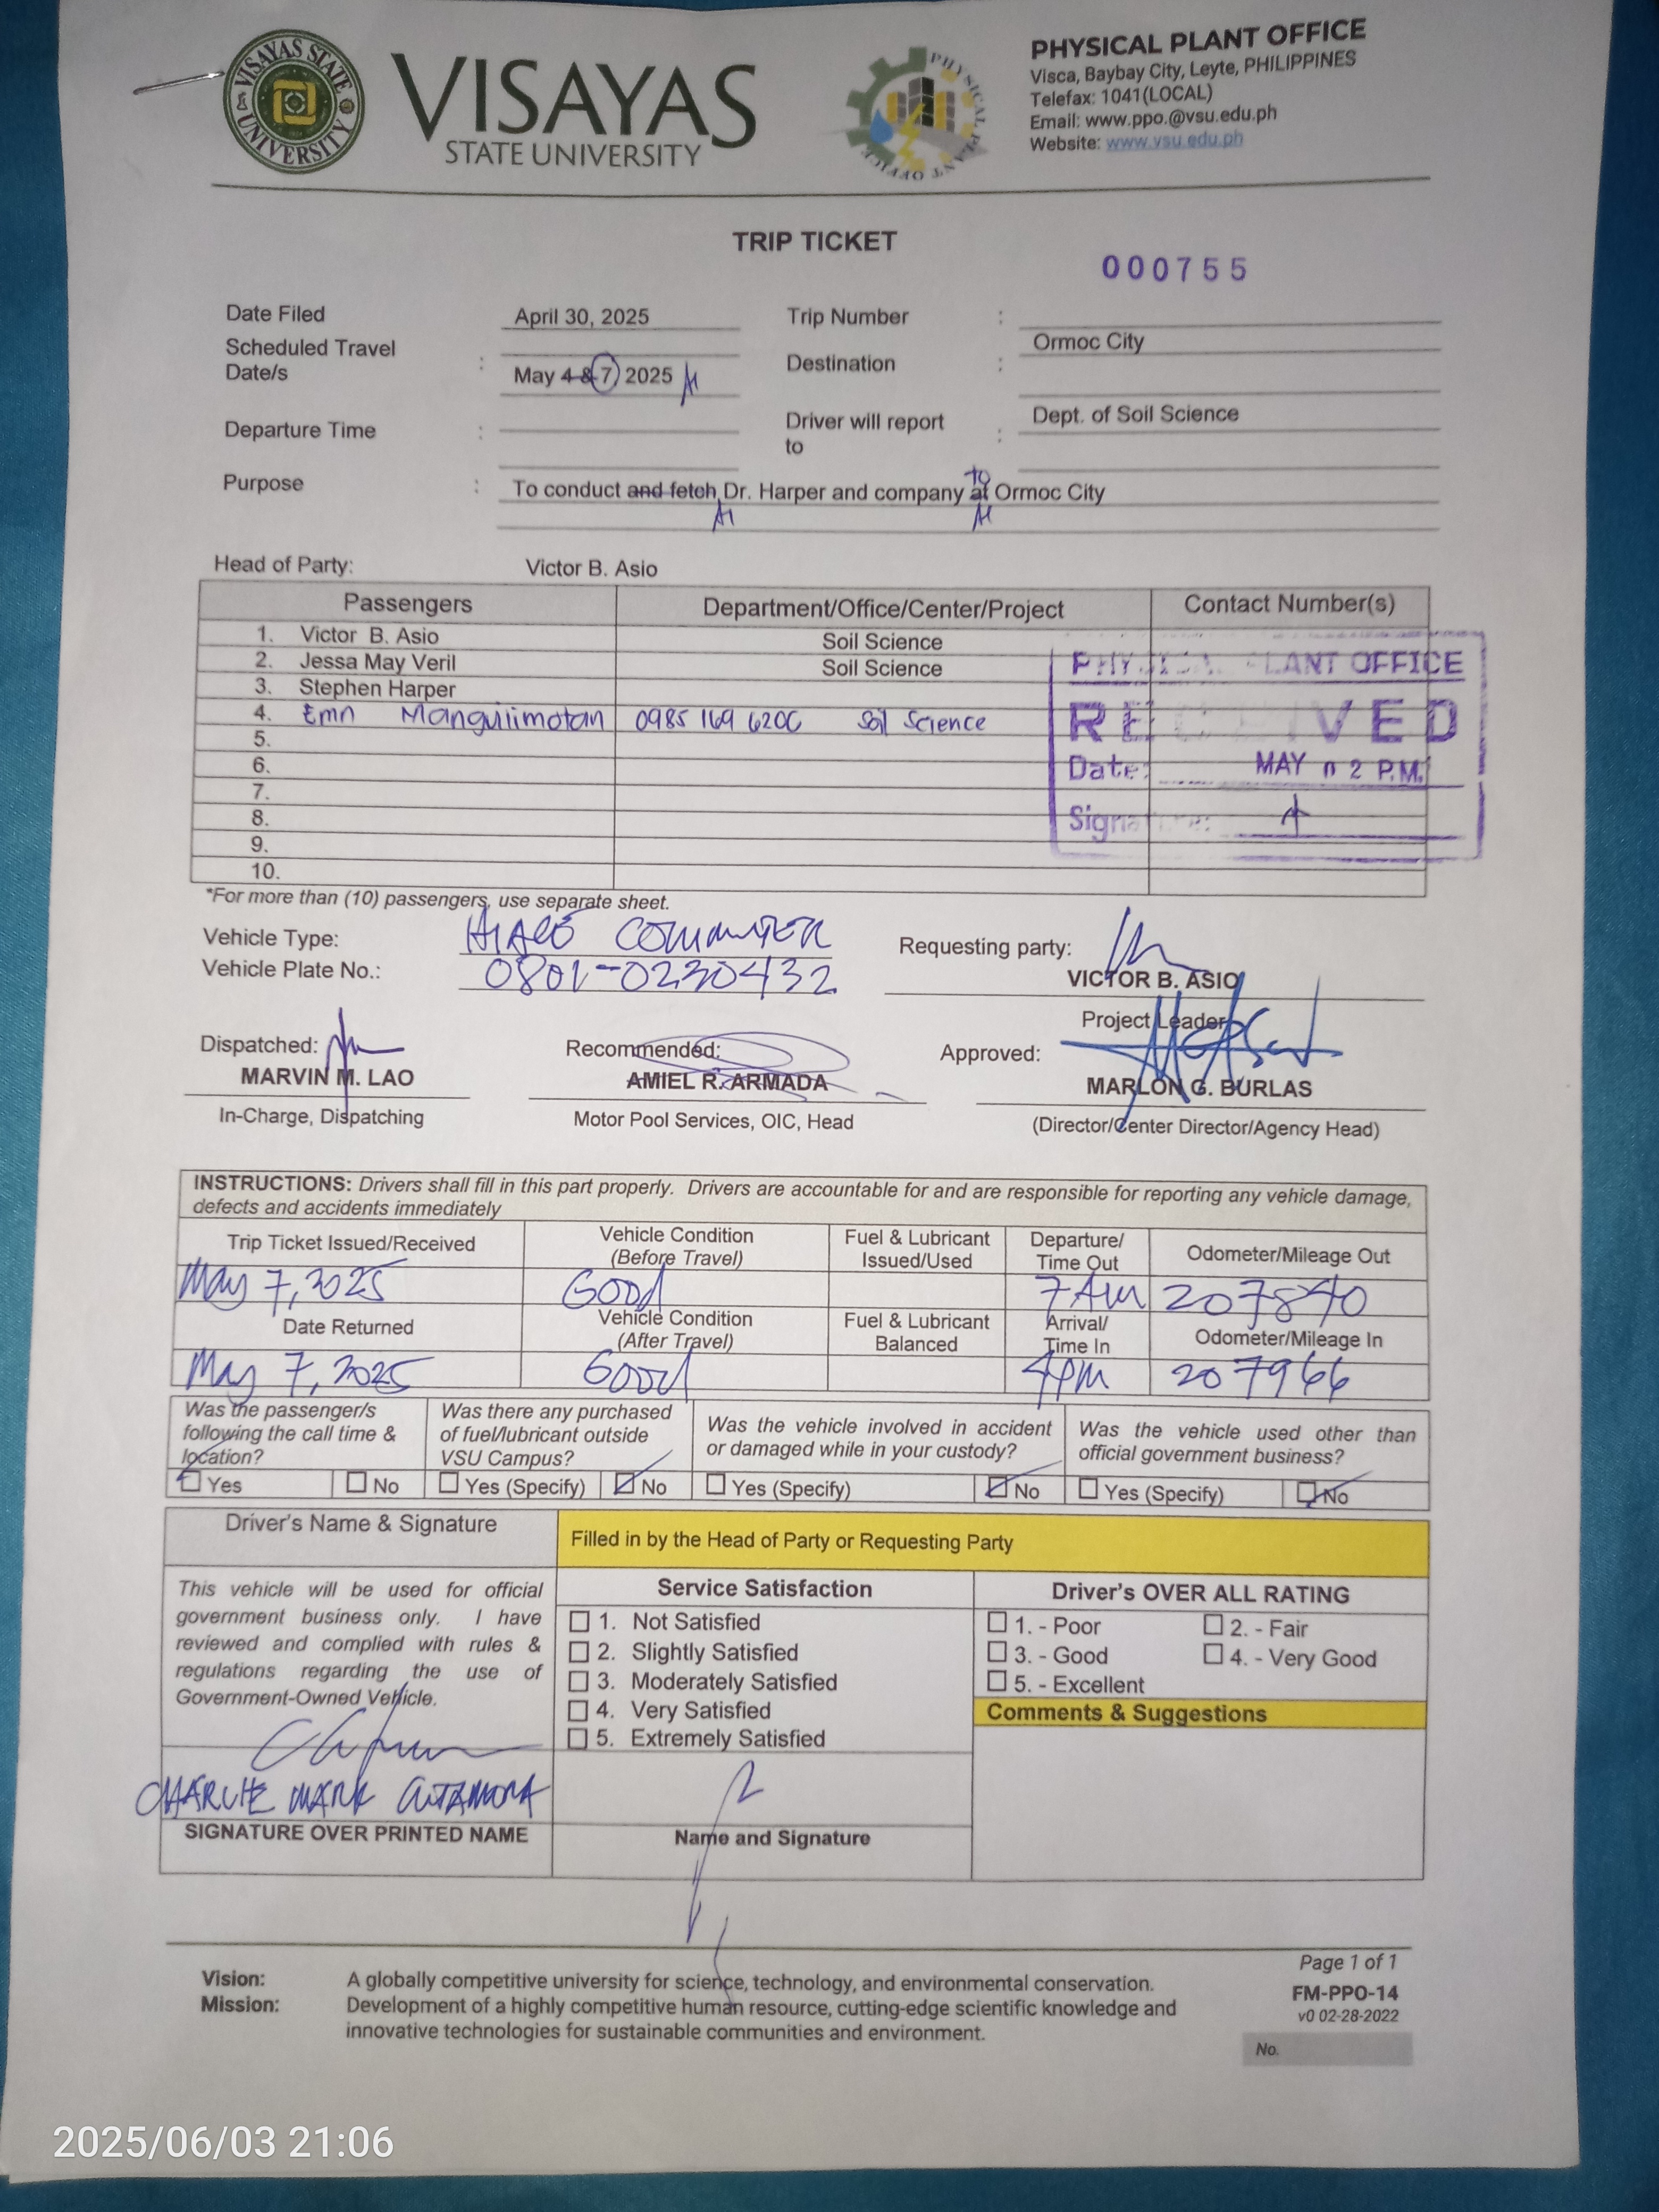 VISAYAS STATE UNIVERSITY
VISAYAS
STATE UNIVERSITY
PHYSICAL PLANT OFFICE
PHYSICAL PLANT OFFICE
Visca, Baybay City, Leyte, PHILIPPINES
Telefax: 1041(LOCAL)
Email: www.ppo.@vsu.edu.ph
Website: www.vsu.edu.ph
TRIP TICKET
000755
Date Filed April 30, 2025 Trip Number :
Scheduled Travel Date/s : May 4 & 7, 2025 Destination : Ormoc City
Departure Time : Driver will report to : Dept. of Soil Science
Purpose : To conduct and fetch Dr. Harper and company at to Ormoc City
Head of Party: Victor B. Asio
Passengers Department/Office/Center/Project Contact Number(s)
1. Victor B. Asio Soil Science
2. Jessa May Veril Soil Science
3. Stephen Harper
4. Emn Manguilimotan 0985 169 6206 Soil Science
5.
6.
7.
8.
9.
10.
PHYSICAL PLANT OFFICE
RECEIVED
Date: MAY 02 P.M.
Signature:
*For more than (10) passengers, use separate sheet.
Vehicle Type: HIACE COMMUTER
Vehicle Plate No.: 0801-0230432
Requesting party:
VICTOR B. ASIO
Project Leader
Dispatched:
MARVIN M. LAO
In-Charge, Dispatching
Recommended:
AMIEL R. ARMADA
Motor Pool Services, OIC, Head
Approved:
MARLON G. BURLAS
(Director/Center Director/Agency Head)
INSTRUCTIONS: Drivers shall fill in this part properly. Drivers are accountable for and are responsible for reporting any vehicle damage,
defects and accidents immediately
Trip Ticket Issued/Received Vehicle Condition (Before Travel) Fuel & Lubricant Issued/Used Departure/ Time Out Odometer/Mileage Out
May 7, 2025 Good 7 AM 207840
Date Returned Vehicle Condition (After Travel) Fuel & Lubricant Balanced Arrival/ Time In Odometer/Mileage In
May 7, 2025 Good 4PM 207966
Was the passenger/s following the call time & location? Was there any purchased of fuel/lubricant outside VSU Campus? Was the vehicle involved in accident or damaged while in your custody? Was the vehicle used other than official government business?
Yes No Yes (Specify) No Yes (Specify) No Yes (Specify) No
Driver's Name & Signature
Filled in by the Head of Party or Requesting Party
This vehicle will be used for official
government business only. I have
reviewed and complied with rules &
regulations regarding the use of
Government-Owned Vehicle.
CHARLIE MARK
SIGNATURE OVER PRINTED NAME
Service Satisfaction
1. Not Satisfied
2. Slightly Satisfied
3. Moderately Satisfied
4. Very Satisfied
5. Extremely Satisfied
Name and Signature
Driver's OVER ALL RATING
1. - Poor 2. - Fair
3. - Good 4. - Very Good
5. - Excellent
Comments & Suggestions
Vision: A globally competitive university for science, technology, and environmental conservation.
Mission: Development of a highly competitive human resource, cutting-edge scientific knowledge and
innovative technologies for sustainable communities and environment.
Page 1 of 1
FM-PPO-14
v0 02-28-2022
No.
2025/06/03 21:06